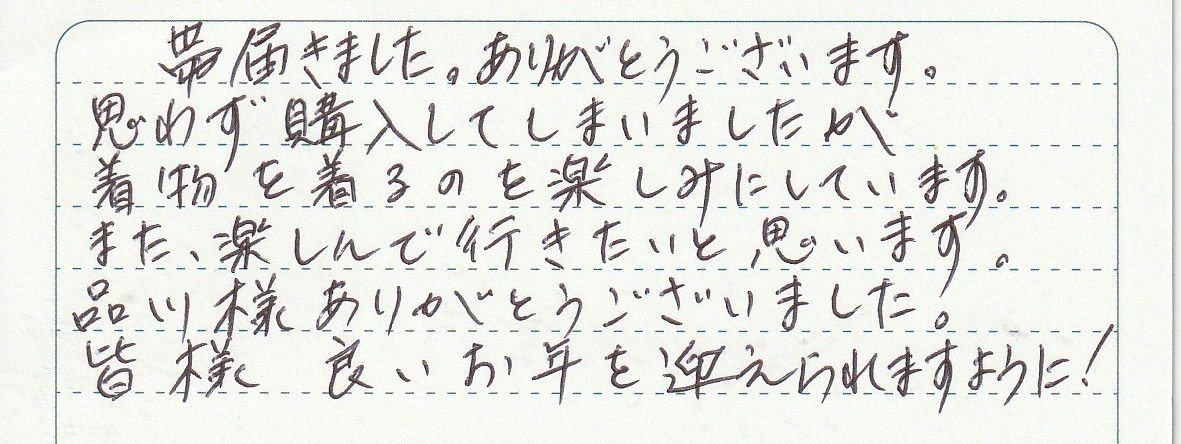 帯届きました。ありがとうございます。
思わず購入してしまいましたが
着物を着るのを楽しみにしています。
また、楽しんで行きたいと思います。
品川様ありがとうございました。
皆様 良いお年を迎えられますように!